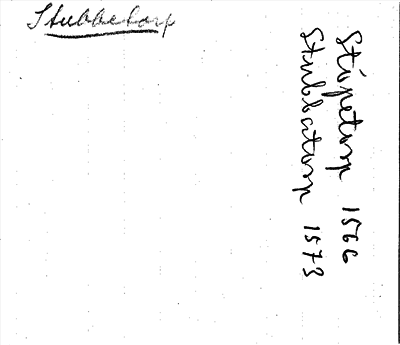 Stubbetorp
Stöpetorp 1566
Stubbatorp 1573